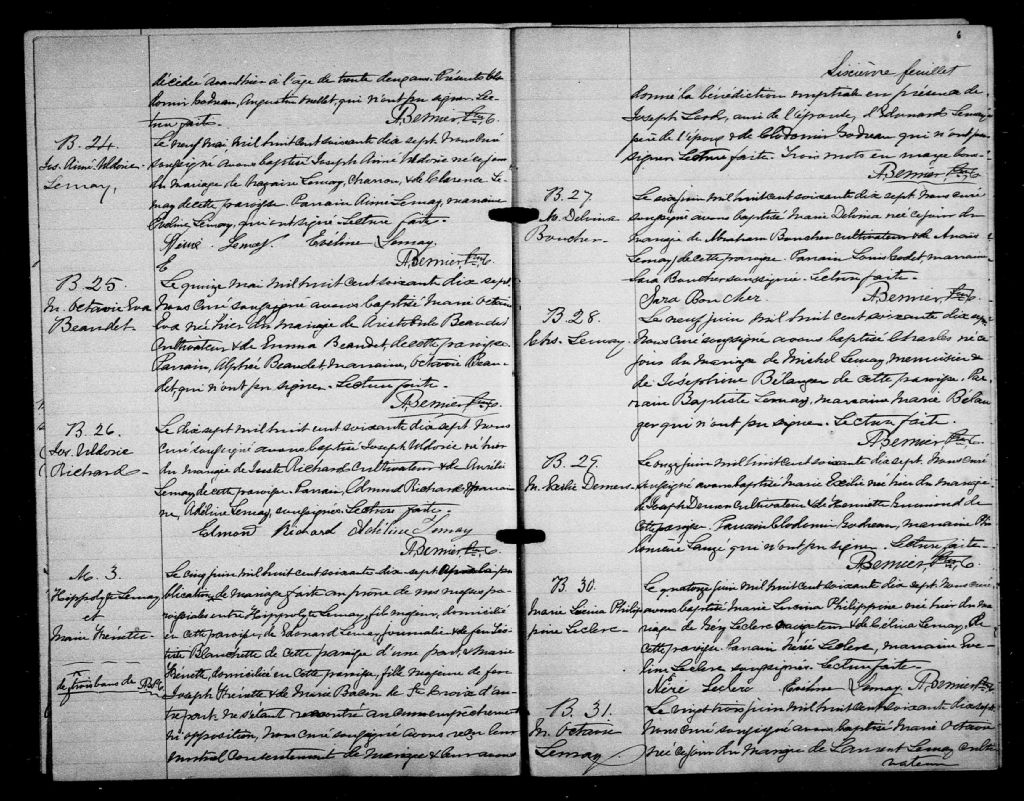 décédée avanthier à l'âge de trente deux ans. Présents Clo-
domir Godeau, Augustin Mollet, qui n'ont pu signer. Lec-
ture faite.
ABernier, Ptre, C.
B. 24.
Jos. Aimé Uldoric
Lemay,
Le neuf mai mil huit cent soixante dix sept Nous curé
soussigné avons baptisé Joseph Aimé Uldoric né ce jour
du mariage de Nazaire Lemay, charron, & de Clarence Le-
may de cette paroisse. Parrain Aimé Lemay, marraine
Exéline Lemay, qui ont signé. Lecture faite.
Aimé Lemay Exéline Lemay.
E
ABernier, Ptre, C.
B 25.
M. Octavie Eva
Beaudet.
Le quinze mai mil huit cent soixante dix sept,
Nous curé soussigné avons baptisé Marie Octavie
Eva née hier du mariage de Aristobule Beaudet
cultivateur & de Emma Beaudet, de cette paroisse.
Parrain, Alphée Beaudet, marraine, Octavie Beau-
det, qui n'ont pu signer. Lecture faite.
ABernier Ptre, C.
B. 26.
Jos. Uldoric
Richard
Le dix sept mil huit cent soixante dix sept Nous
curé soussigné avons baptisé Joseph Uldoric né hier
du mariage de Juste Richard cultivateur & de Aurélie
Lemay de cette paroisse. Parrain, Edmond Richard, & marrai-
ne, Adéline Lemay, soussignés. Lecture faite.
Edmond Richard Adéline Lemay
ABernier, Ptre, C.
M. 3.
Hippolyte Lemay
et
Marie Frénette
Le cinq juin mil huit cent soixante dix sept, Après la pu-
blication de mariage faite au prône de nos messes pa-
roissiales entre Hippolyte Lemay, fils majeur, domicilié
en cette paroisse, de Edouard Lemay journalier & de feu
Blanchette de cette paroisse d'une part, & Marie
Frénette, domiciliée en cette paroisse, fille majeure de feu
Joseph Frénette & de Marie de Ste Croix d'au-
tre part. Ne s'étant rencontré aucun empêchement
ni opposition, Nous curé soussigné avons reçu leur
mutuel consentement de mariage & leur avons
6
Sixième feuillet
donné la bénédiction nuptiale en présence de
Joseph ami de l'épouse, d'Edouard Lemay
père de l'époux & de Clodomir Godeau qui n'ont pu
signer. Lecture faite. Trois mots en marge bons.
ABernier, Ptre, C
B. 27.
M. Delvina
Boucher
Le six juin mil huit cent soixante dix sept Nous curé
soussigné avons baptisé Marie Delvina née ce jour du
mariage de Abraham Boucher cultivateur & de Anaïs
Lemay de cette paroisse. Parrain Louis Godet, marraine
Sara Boucher soussignée. Lecture faite.
Sara Boucher ABernier, Ptre, C.
B 28.
Chs. Lemay.
Le neuf juin mil huit cent soixante dix sept
Nous curé soussigné avons baptisé Charles né ce
jour du mariage de Michel Lemay, menuisier &
de Joséphine Bélanger de cette paroisse. Par-
rain Baptiste Lemay, marraine Marie Bélan-
ger qui n'ont pu signer. Lecture faite.
ABernier Ptre, C.
B. 29.
M. Exilie Demers
Le onze juin mil huit cent soixante dix sept. Nous curé
soussigné avons baptisé Marie Exilie née hier du mariage
de Joseph Demers cultivateur & de Henriette de
cette paroisse. Parrain Clodomir Godeau, marraine Phi-
lomène Lauzé qui n'ont pu signer. Lecture faite.
ABernier Ptre, C.
B 30.
Marie Lucina Philip-
pine Leclerc
Le quatorze juin mil huit cent soixante dix sept. Nous curé
avons baptisé Marie Lucina Philippine née hier du ma-
riage de Leclerc & de Célina Lemay, de
cette paroisse. Parrain Nérée Leclerc, marraine Exé-
line Leclerc soussignés. Lecture faite.
Néré Leclerc Exéline Lemay. ABernier Ptre C.
B. 31.
M. Octavie
Lemay
Le vingt trois juin mil huit cent soixante dix sept
Nous curé soussigné avons baptisé Marie Octavie
née ce jour du mariage de Laurent Lemay culti-
vateur